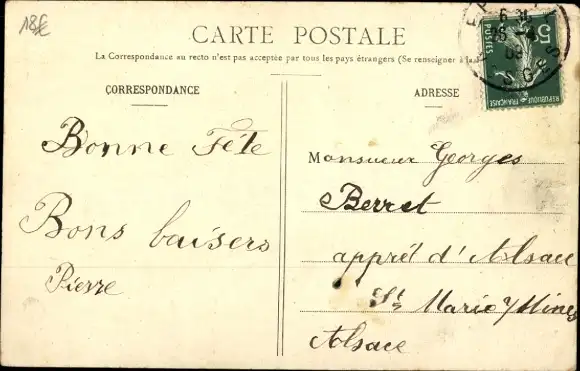 18€
CARTE POSTALE
La Correspondance au recto n'est pas acceptée par tous les pays étrangers (Se renseigner à la
CORRESPONDANCE
ADRESSE
Bonne Fête
Bons baisers
Pierre
Monsueur Georges
Berret
apprêt d'Alsace
Ste Marie ˢ/ Mines
Alsace
5
POSTES
REPUBLIQUE FRANÇAISE